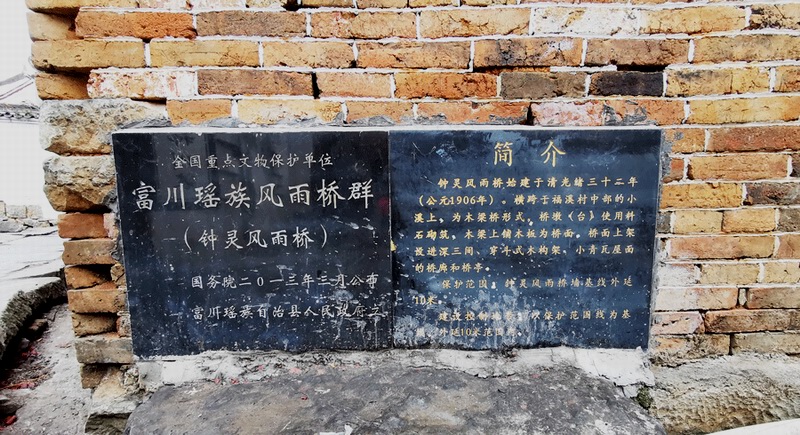 全国重点文物保护单位
富川瑶族风雨桥群
（钟灵风雨桥）
国务院二〇一三年三月公布
富川瑶族自治县人民政府立
简介
钟灵风雨桥始建于清光绪三十二年
（公元1906年）。横跨于福溪村中部的小
溪上，为木梁桥形式，桥墩（台）使用料
石砌筑，木梁上铺木板为桥面。桥面上架
设进深三间、穿斗式木构架、小青瓦屋面
的桥廊和桥亭。
保护范围：钟灵风雨桥墙基线外延
10米。
建设控制地带：以保护范围线为基
线，外延10米范围。